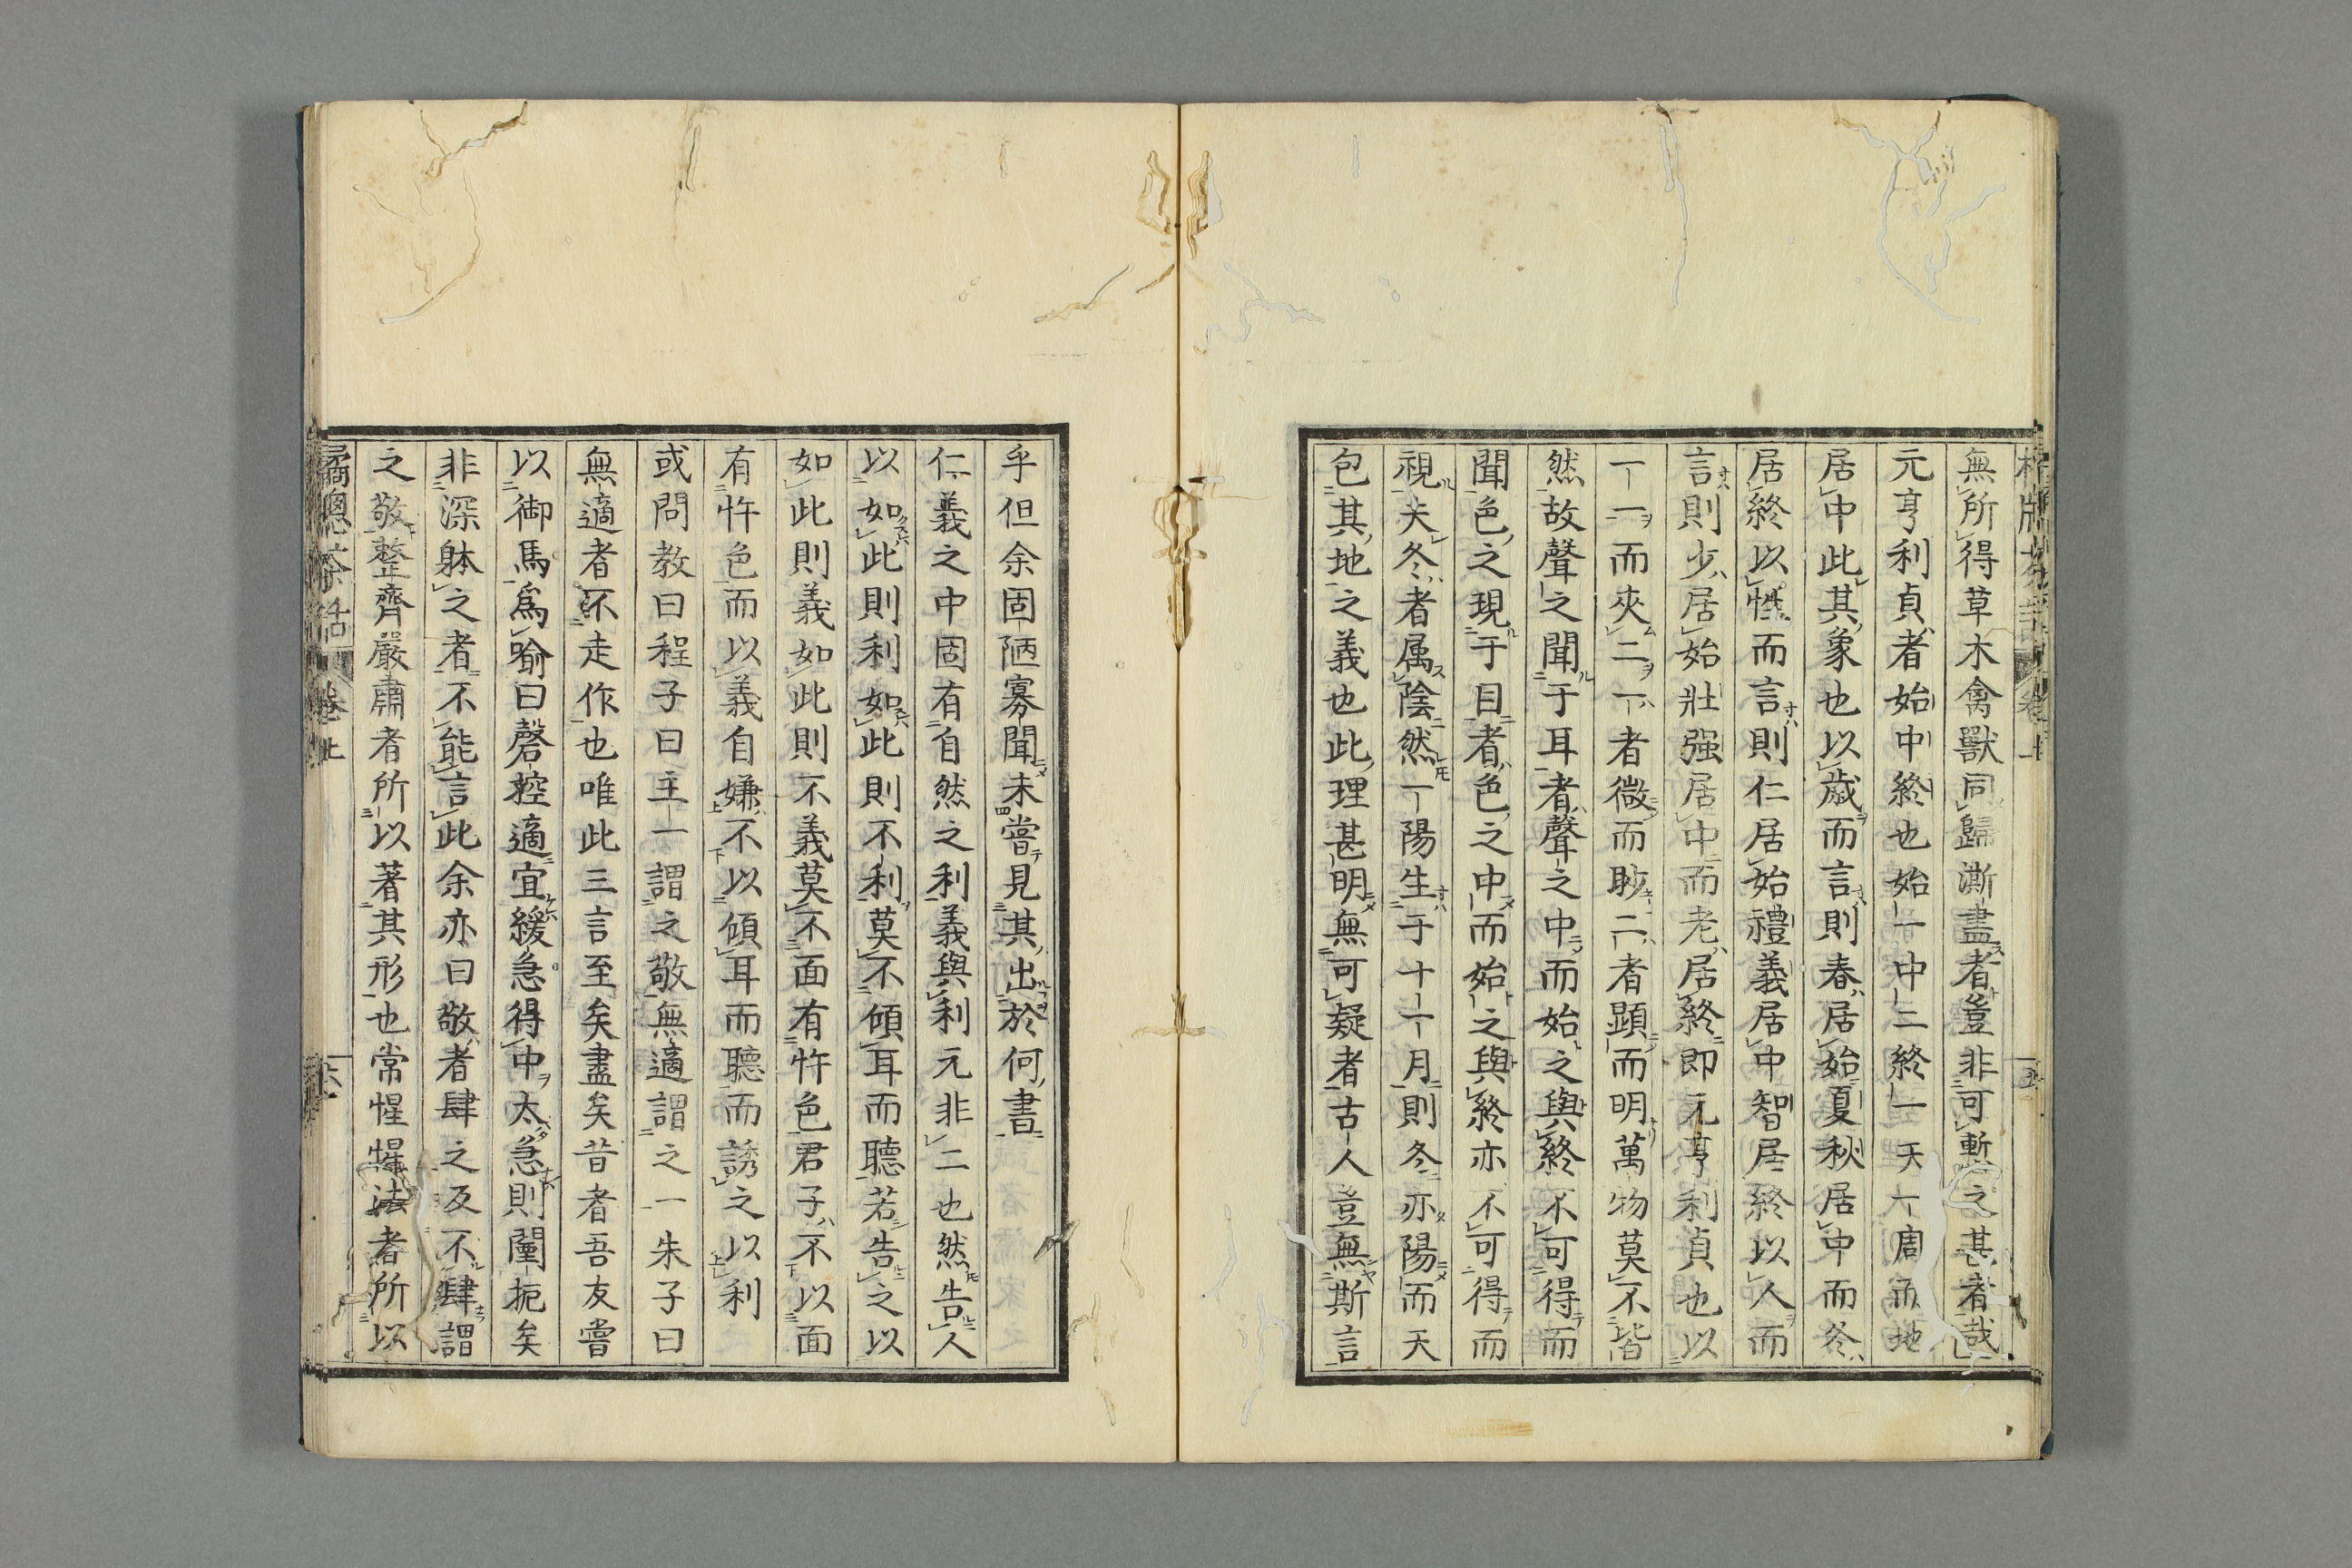 無所得草木禽獸同歸澌盡者豈非可慙之甚者哉
元亨利貞者始中終也始一中二終一天一周而地
居中此其象也以歲而言則春居始夏秋居中而冬
居終以性而言則仁居始禮義居中智居終以人而
言則少居始壯强居中而老居終即元亨利貞也以
一一而夾二一者微而眇二者顯而明萬物莫不皆
然故聲之聞于耳者聲之中而始之與終不可得而
聞色之現于目者色之中而始之與終亦不可得而
視夫冬者属陰然一陽生于十一月則冬亦陽而天
包其地之義也此理甚明無可疑者古人豈無斯言
乎但余固陋寡聞未嘗見其出於何書
仁義之中固有自然之利義與利元非二也然告人
以如此則利如此則不利莫不傾耳而聽若告之以
如此則義如此則不義莫不面有忤色君子不以面
有忤色而以義自嫌不以傾耳而聽而誘之以利
或問教曰程子曰主一謂之敬無適謂之一朱子曰
無適者不走作也唯此三言至矣盡矣昔者吾友嘗
以御馬爲喻曰磬控適宜緩急得中太急則闉扼矣
非深躰之者不能言此余亦曰敬者肆之反不肆謂
之敬整齊嚴肅者所以著其形也常惺惺法者所以
茶話 卷上